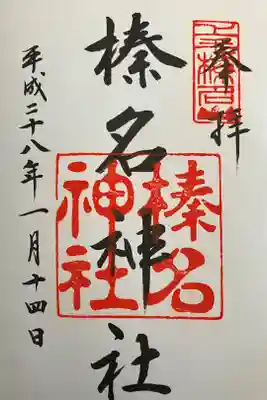 奉拝
榛名神社
平成二十八年一月十四日
榛名
神社